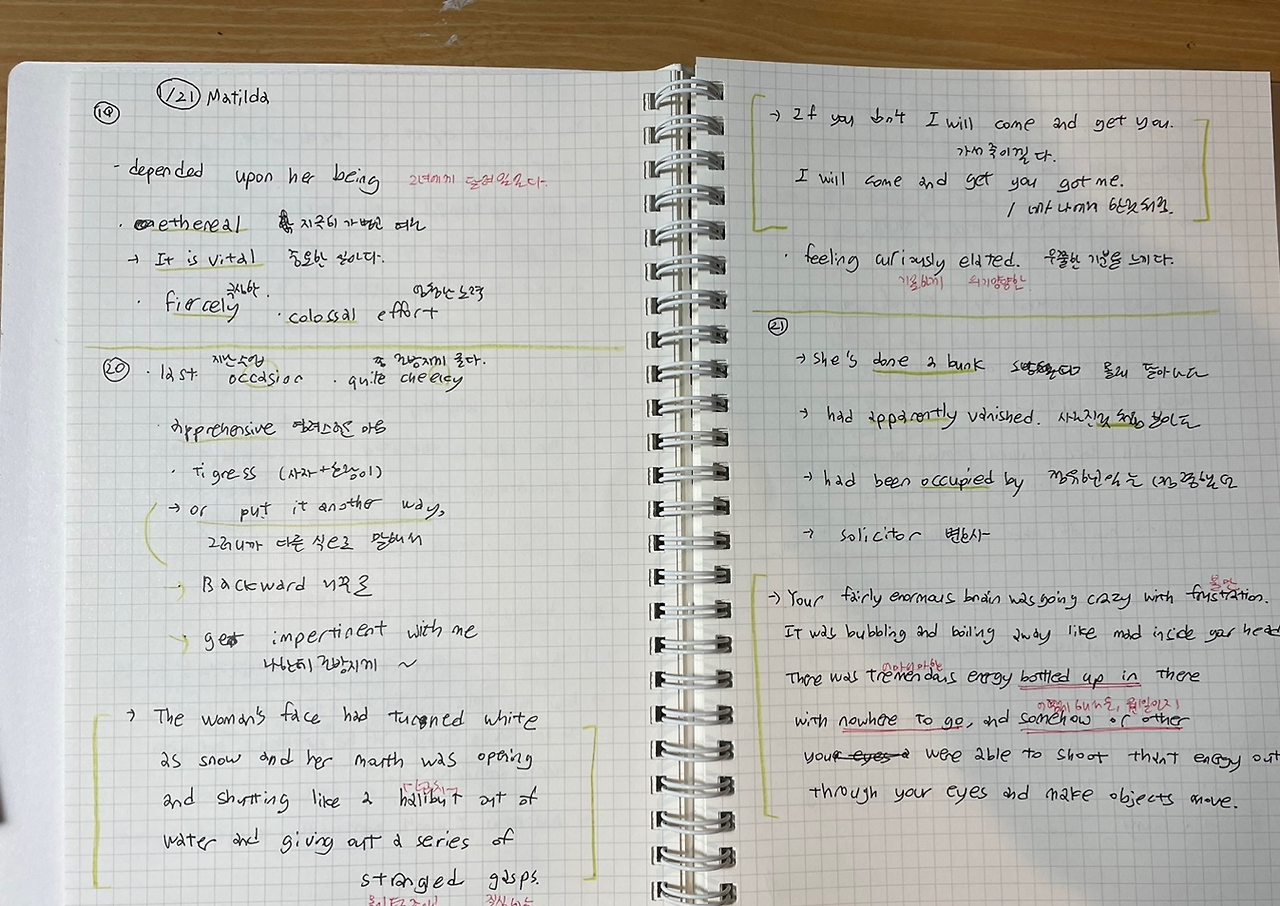 1/21 Matilda
19
- depended upon her being 그녀에게 달려있다.
· ethereal 지극히 가볍고 여린
→ It is vital 중요한 일이다.
극심한. 엄청난 노력
· fiercely · colossal effort
지난 수업 좀 건방지게 굴다.
20 · last occasion · quite cheeky
· apprehensive 염려스러운 마음
· Tigress (사자+호랑이)
→ or put it another way,
그러니까 다른 식으로 말해서
→ Backward 거꾸로
→ get impertinent with me
나한테 건방지게 ~
→ The woman's face had turned white
as snow and her mouth was opening
and shutting like a halibut out of
water and giving out a series of
strangled gasps.
→ If you don't I will come and get you.
가서 죽이낄 다.
I will come and get you got me.
/ 네가 나에게 한것처럼.
· feeling curiously elated. 우쭐한 기분을 느끼다.
의기양양한
21
→ She's done a bunk 몰래 달아나다
→ had apparently vanished. 사라진것 처럼 보이도
→ had been occupied by
→ solicitor 변호사
불만
→ Your fairly enormous brain was going crazy with frustration.
It was bubbling and boiling away like mad inside your head
어마어마한
There was tremendous energy bottled up in there
with nowhere to go, and somehow or other
you were able to shoot that energy out
through your eyes and make objects move.